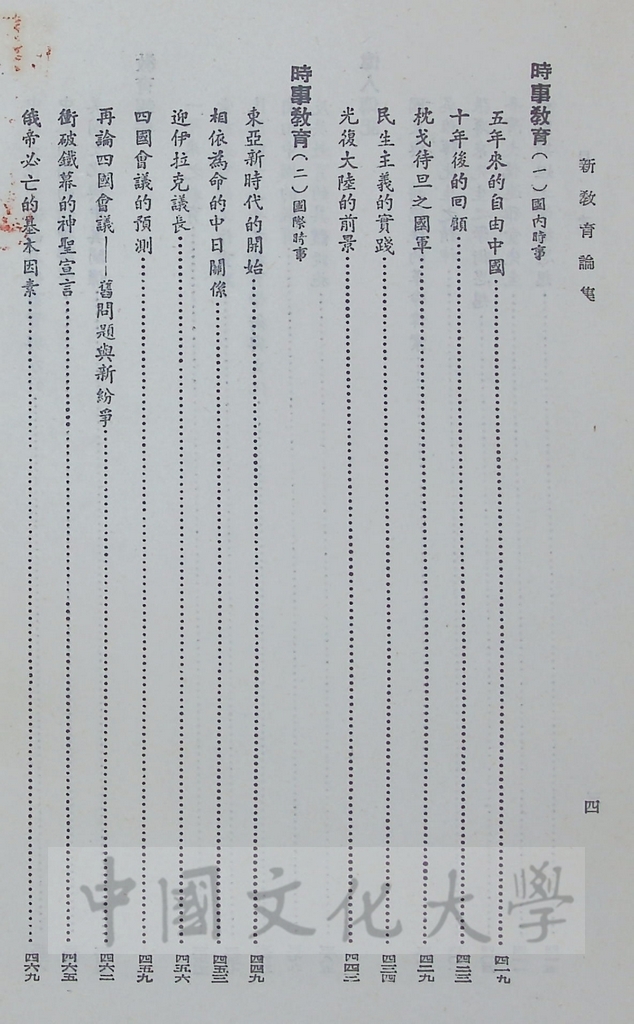 新教育論集
四
時事教育(一)國內時事
五年來的自由中國……四一九
十年後的回顧……四二三
枕戈待旦之國軍……四二九
民生主義的實踐……四三四
光復大陸的前景……四四三
時事教育(二)國際時事
東亞新時代的開始……四四九
相依為命的中日關係……四五三
迎伊拉克議長……四五六
四國會議的預測……四五九
再論四國會議——舊問題與新紛爭……四六二
衝破鐵幕的神聖宣言……四六五
俄帝必亡的基本因素……四六九
中國文化大學